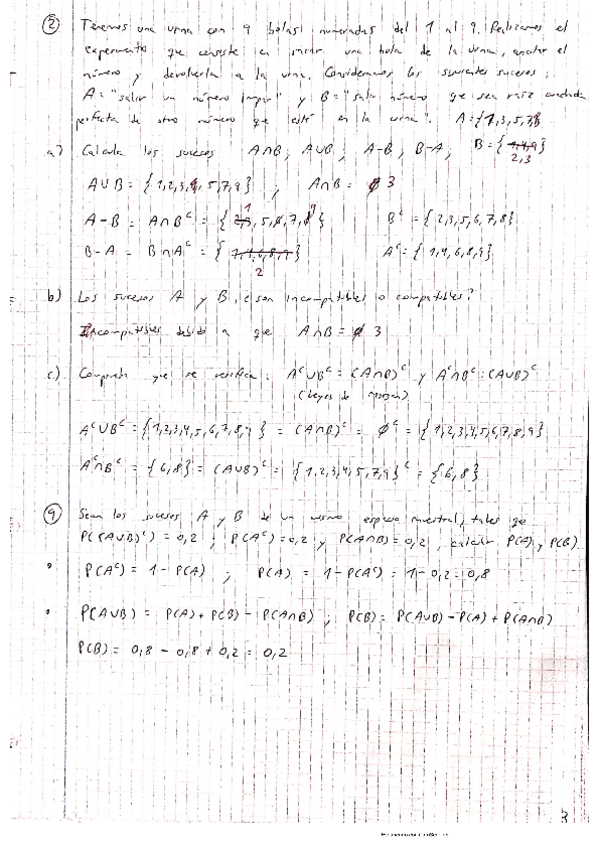 ② Tenemos una urna con 9 bolas numeradas del 1 al 9. Realizamos el
experimento que consiste en sacar una bola de la urna, anotar el
número y devolverla a la urna. Consideramos los siguientes sucesos:
A = "salir un número impar" y B = "salir número que sea raíz cuadrada
perfecta de otro número que esté en la urna". A = {1,3,5,7,9}
a) Calcula los sucesos A∩B, A∪B; A-B, B-A, B = {1,4,9}
2,3
A∪B = {1,2,3,4,5,7,9}, A∩B = ø 3
A-B = A∩Bᶜ = {2,3,5,6,7,8} 1 9 Bᶜ = {2,3,5,6,7,8}
B-A = B∩Aᶜ = {1,4,6,8,9} Aᶜ = {1,4,6,8,9}
2
b) Los sucesos A y B, ¿son incompatibles o compatibles?
Incompatibles debido a que A∩B = ø 3
c) Comprueba que se verifica: Aᶜ∪Bᶜ = (A∩B)ᶜ y Aᶜ∩Bᶜ = (A∪B)ᶜ
(Leyes de Morgan)
Aᶜ∪Bᶜ = {1,2,3,4,5,6,7,8,9} = (A∩B)ᶜ = øᶜ = {1,2,3,4,5,6,7,8,9}
Aᶜ∩Bᶜ = {6,8} = (A∪B)ᶜ = {1,2,3,4,5,7,9}ᶜ = {6,8}
⑨ Sean los sucesos A y B de un mismo espacio muestral, tales que
P((A∪B)ᶜ) = 0,2; P(Aᶜ) = 0,2 y P(A∩B) = 0,2, calcular P(A) y P(B).
• P(Aᶜ) = 1 - P(A) ; P(A) = 1 - P(Aᶜ) = 1 - 0,2 = 0,8
• P(A∪B) = P(A) + P(B) - P(A∩B), P(B) = P(A∪B) - P(A) + P(A∩B)
P(B) = 0,8 - 0,8 + 0,2 = 0,2
3